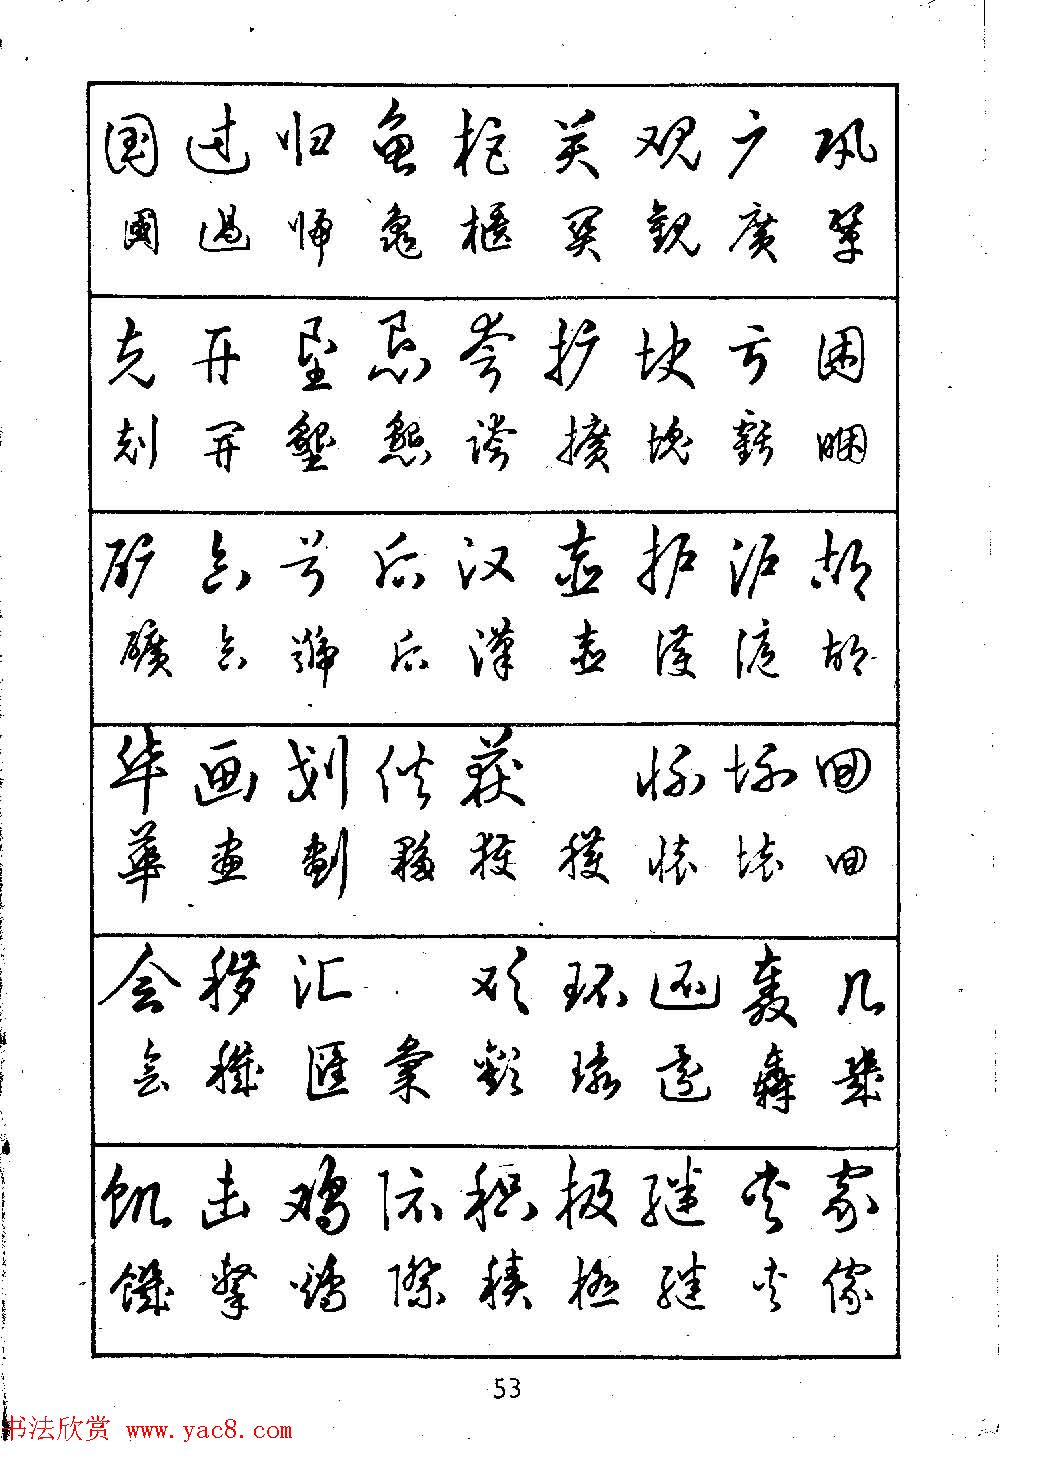 国 过 归 龟 柜 关 观 广 巩
國 過 歸 龜 櫃 關 觀 廣 鞏
克 开 垦 恳 夸 扩 块 亏 困
剋 開 墾 懇 誇 擴 塊 虧 睏
矿 合 号 后 汉 壶 护 沪 胡
礦 合 號 后 漢 壺 護 滬 胡
华 画 划 伙 获 怀 坏 回
華 畫 劃 夥 獲 穫 懷 壞 回
会 秽 汇 欢 环 还 轰 几
會 穢 匯 彙 歡 環 還 轟 幾
饥 击 鸡 际 积 极 继 夹 家
饑 擊 鷄 際 積 極 繼 夾 傢
53
书法欣赏 www.yac8.com